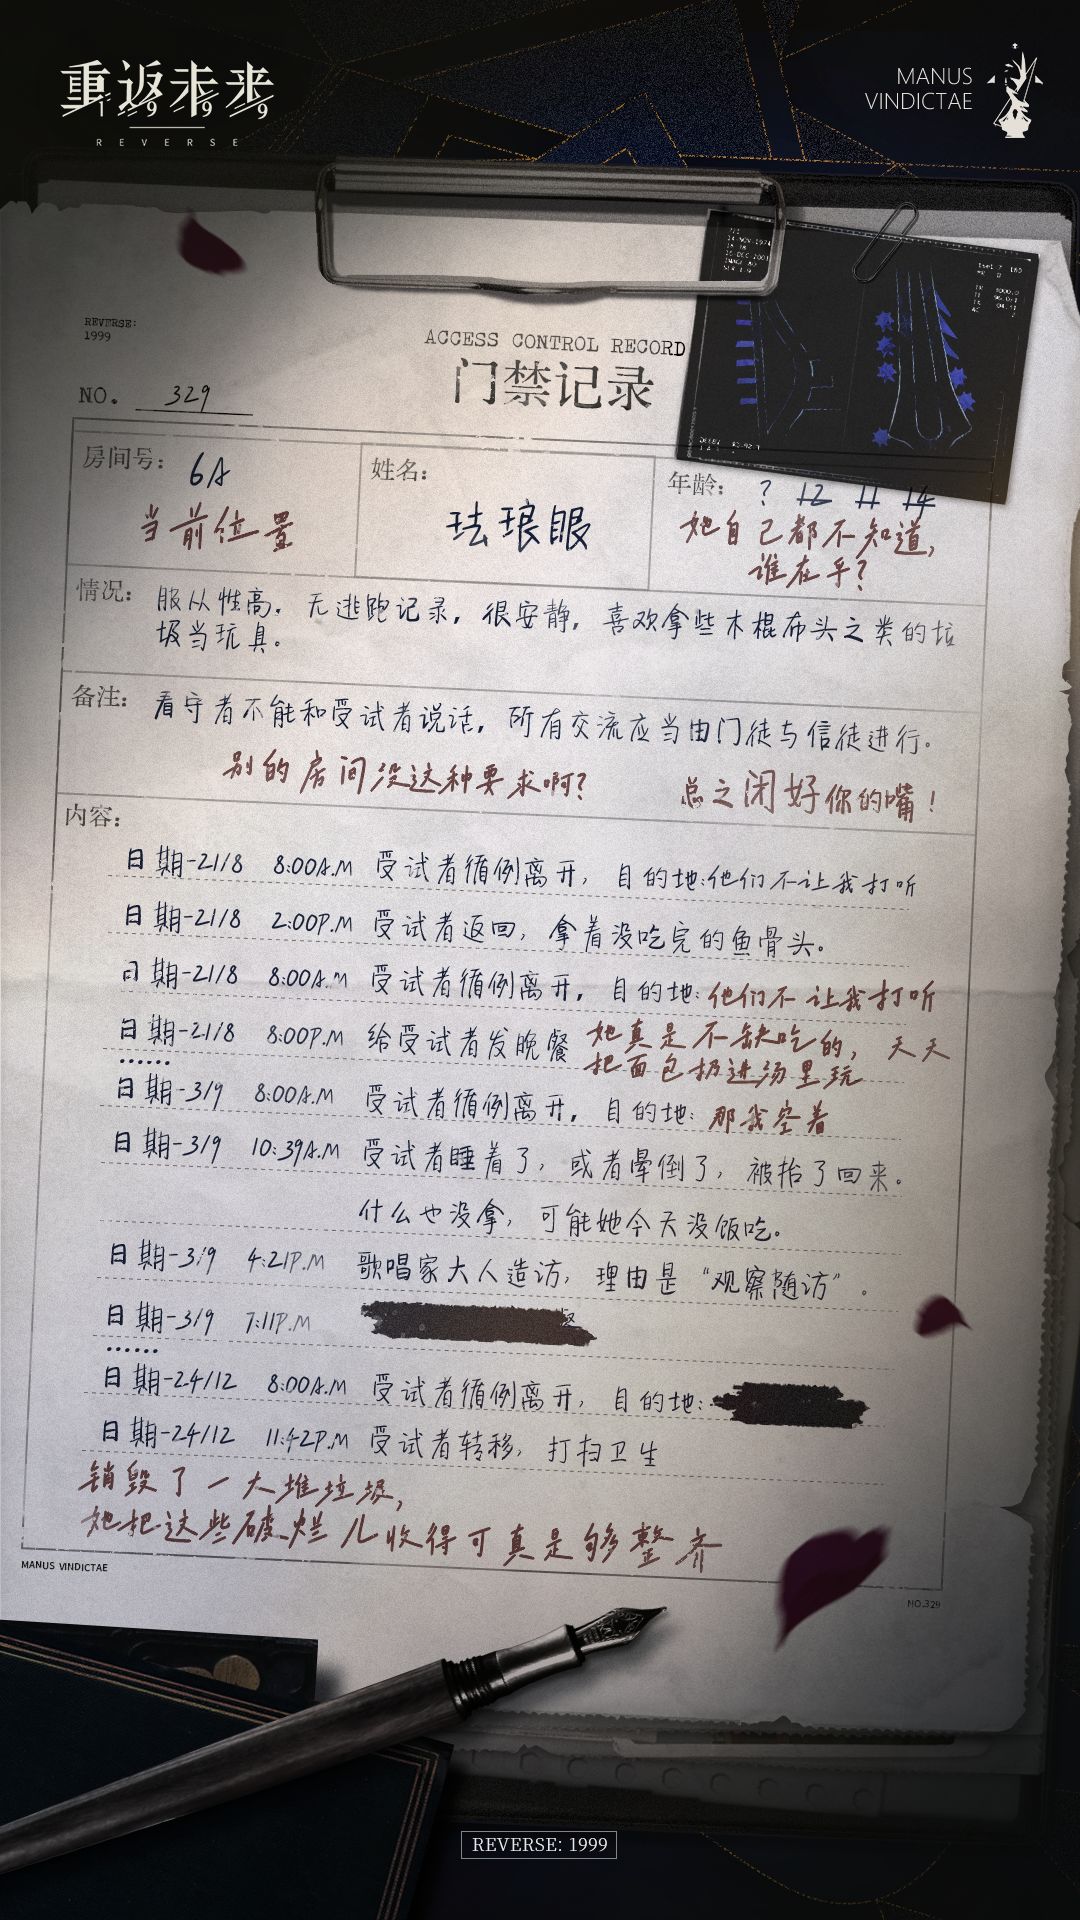 重返未来
1999
REVERSE
MANUS
VINDICTAE
14 NOV 1974
REVERSE:
1999
ACCESS CONTROL RECORD
门禁记录
NO. 329
房间号: 6A
当前位置
姓名:
珐琅眼
年龄: ? 12 11 14
她自己都不知道,
谁在乎?
情况: 服从性高. 无逃跑记录, 很安静, 喜欢拿些木棍布头之类的垃
圾当玩具。
备注: 看守者不能和受试者说话, 所有交流应当由门徒与信徒进行。
别的房间没这种要求啊?
总之闭好你的嘴!
内容:
日期-21/8 8:00A.M 受试者循例离开, 目的地:他们不让我打听
日期-21/8 2:00P.M 受试者返回, 拿着没吃完的鱼骨头。
日期-21/8 8:00A.M 受试者循例离开, 目的地: 他们不让我打听
日期-21/8 8:00P.M 给受试者发晚餐 她真是不缺吃的, 天天
把面包扔进汤里玩
......
日期-3/9 8:00A.M 受试者循例离开, 目的地: 那我空着
日期-3/9 10:39A.M 受试者睡着了, 或者晕倒了, 被抬了回来。
什么也没拿, 可能她今天没饭吃。
日期-3/9 4:21P.M 歌唱家大人造访, 理由是“观察随访”。
日期-3/9 7:11P.M
......
日期-24/12 8:00A.M 受试者循例离开, 目的地:
日期-24/12 11:42P.M 受试者转移, 打扫卫生
销毁了一大堆垃圾,
她把这些破烂儿收得可真是够整齐
MANUS VINDICTAE
NO.329
REVERSE: 1999